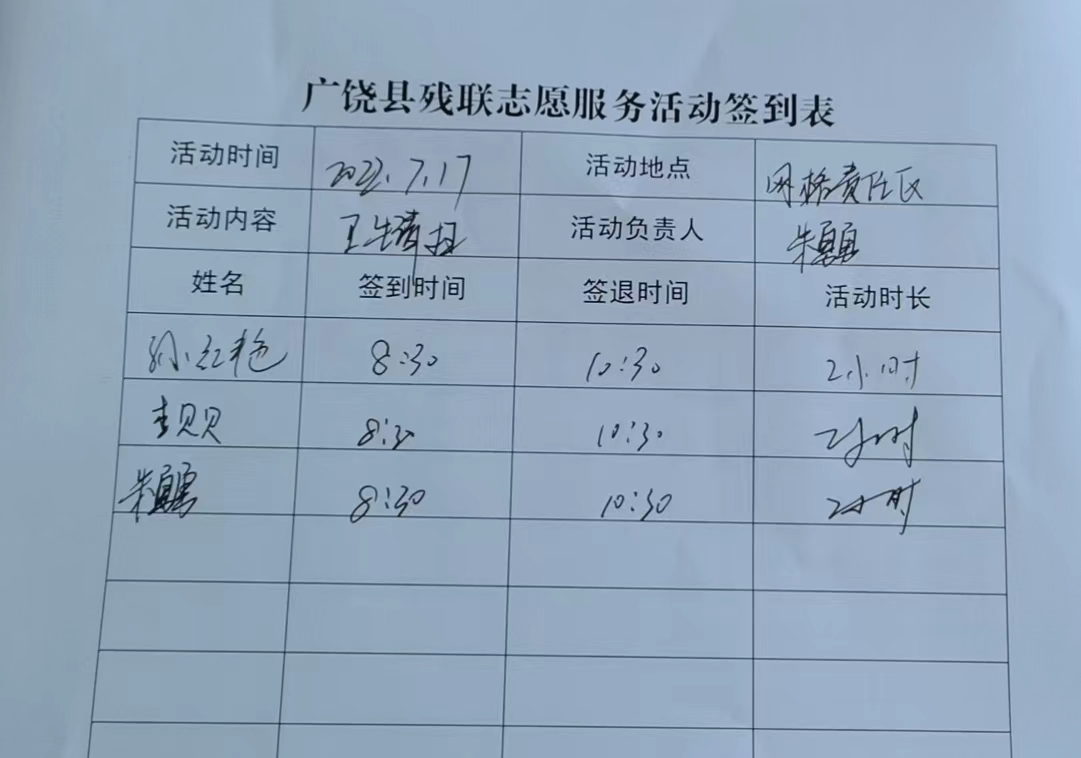 广饶县残联志愿服务活动签到表
活动时间 2022.7.17 活动地点 网格责任区
活动内容 卫生清扫 活动负责人 朱
姓名 签到时间 签退时间 活动时长
孙红艳 8:30 10:30 2小时
李贝贝 8:30 10:30 2小时
朱 8:30 10:30 2小时